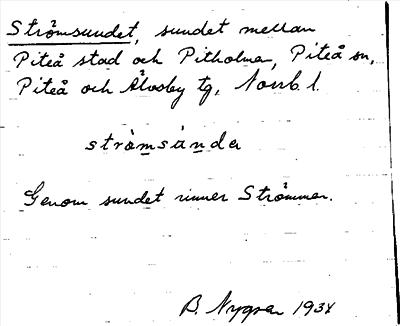 Strömsundet, sundet mellan
Piteå stad och Pitholmen, Piteå sn,
Piteå och Älvsby tg, Norrb. l.
strömsúndə
Genom sundet rinner Strömmen.
B. Nygren 1934